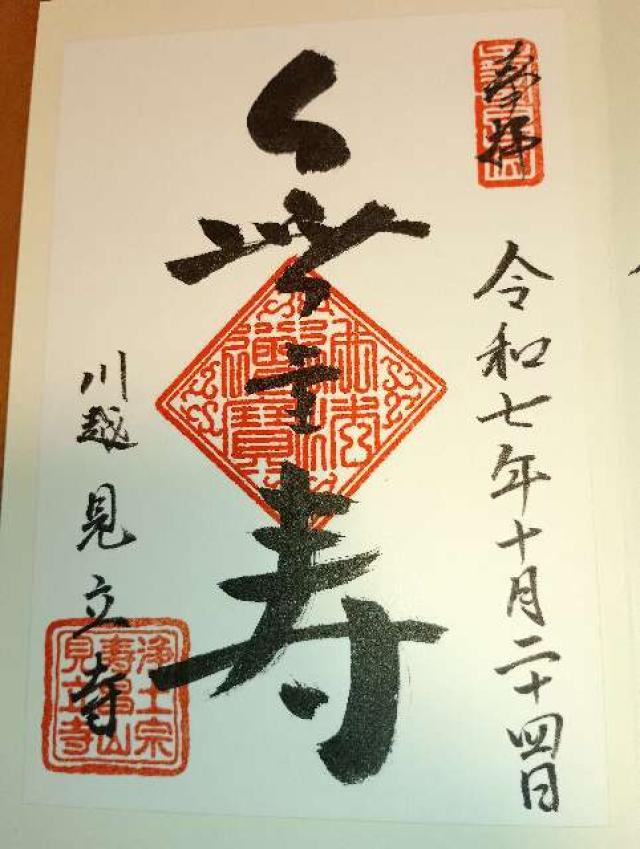 奉拝
令和七年十月二十四日
無量寿
佛法
僧寶
川越 見立寺
浄土宗
壽昌山
見立寺